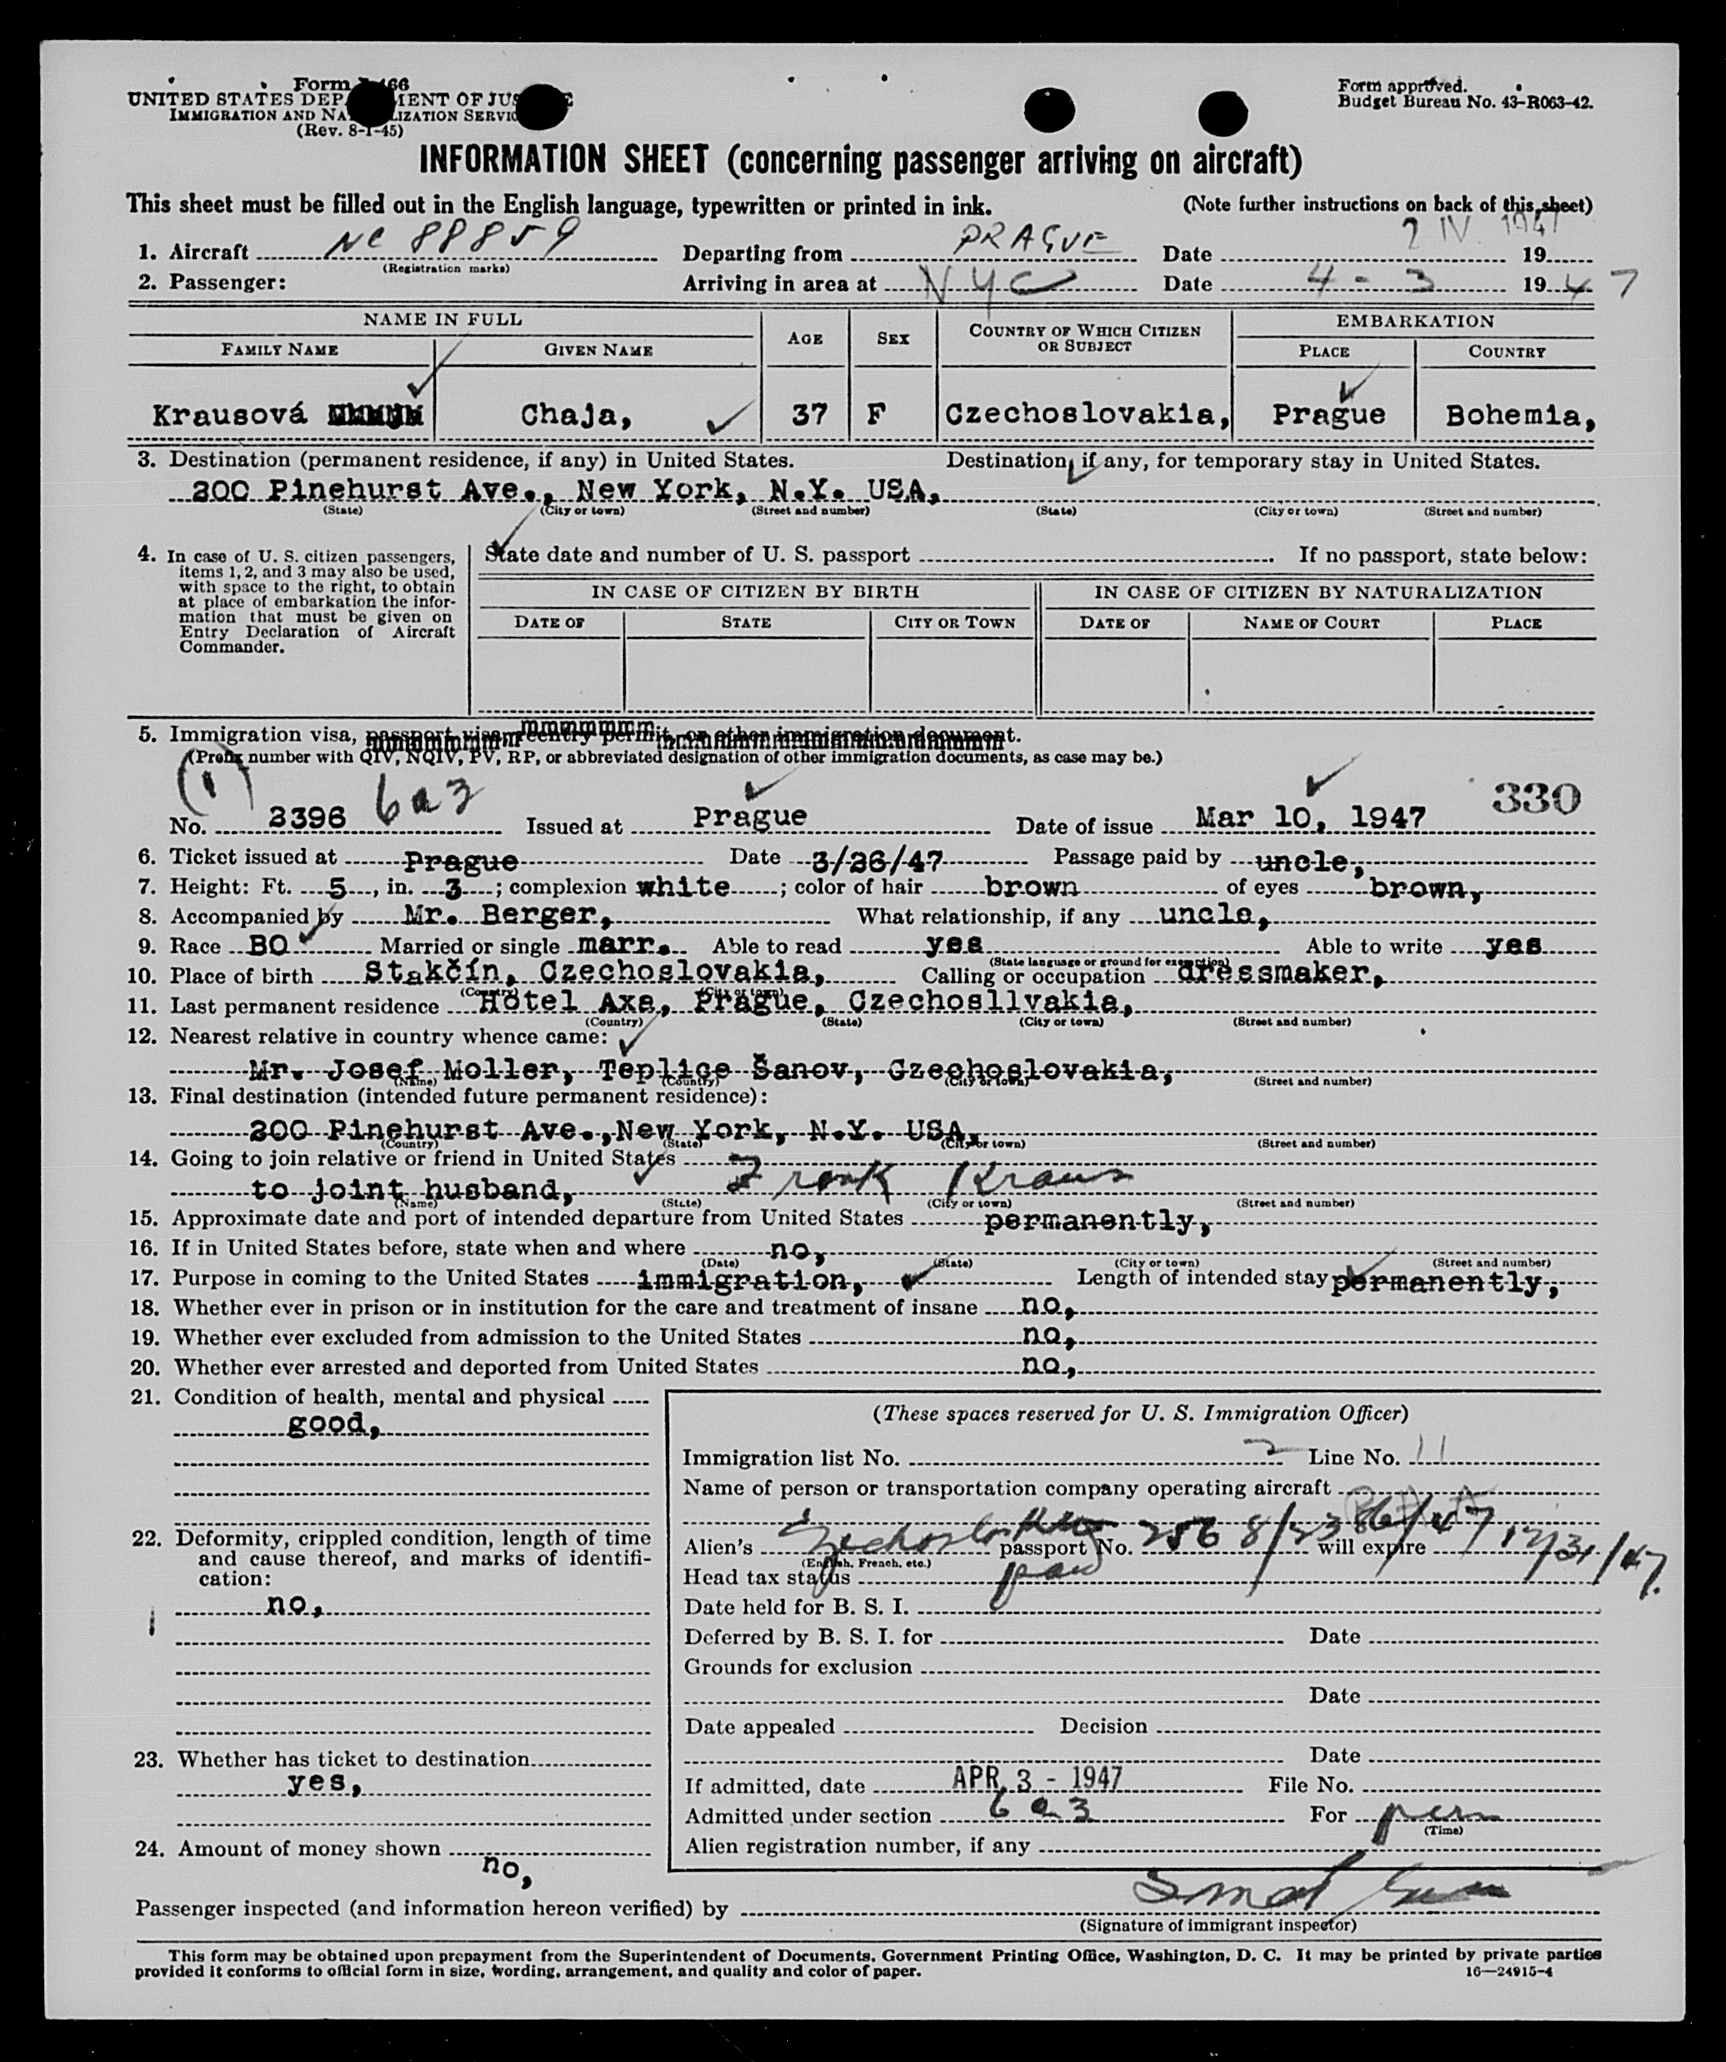 Form I-466
UNITED STATES DEPARTMENT OF JUSTICE
IMMIGRATION AND NATURALIZATION SERVICE
(Rev. 8-1-45)
Form approved.
Budget Bureau No. 43-R063-42.
INFORMATION SHEET (concerning passenger arriving on aircraft)
This sheet must be filled out in the English language, typewritten or printed in ink. (Note further instructions on back of this sheet)
1. Aircraft NC 88859 Departing from PRAGUE Date 2 IV 1947 19
(Registration marks)
2. Passenger: Arriving in area at NYC Date 4-3 1947
NAME IN FULL AGE SEX COUNTRY OF WHICH CITIZEN OR SUBJECT EMBARKATION
FAMILY NAME GIVEN NAME PLACE COUNTRY
Krausová Chaja, 37 F Czechoslovakia, Prague Bohemia,
3. Destination (permanent residence, if any) in United States. Destination, if any, for temporary stay in United States.
200 Pinehurst Ave., New York, N.Y. USA,
(State) (City or town) (Street and number) (State) (City or town) (Street and number)
4. In case of U. S. citizen passengers, items 1, 2, and 3 may also be used, with space to the right, to obtain at place of embarkation the information that must be given on Entry Declaration of Aircraft Commander.
State date and number of U. S. passport If no passport, state below:
IN CASE OF CITIZEN BY BIRTH IN CASE OF CITIZEN BY NATURALIZATION
DATE OF STATE CITY OR TOWN DATE OF NAME OF COURT PLACE
5. Immigration visa, passport visa, reentry permit, or other immigration document.
(Prefix number with QIV, NQIV, PV, RP, or abbreviated designation of other immigration documents, as case may be.)
(1) 6a3 330
No. 2396 Issued at Prague Date of issue Mar 10, 1947
6. Ticket issued at Prague Date 3/26/47 Passage paid by uncle,
7. Height: Ft. 5, in. 3; complexion white; color of hair brown of eyes brown,
8. Accompanied by Mr. Berger, What relationship, if any uncle,
9. Race BO Married or single marr. Able to read yes Able to write yes
(State language or ground for exemption)
10. Place of birth Stakčín, Czechoslovakia, Calling or occupation dressmaker,
(Country) (City or town)
11. Last permanent residence Hotel Axa, Prague, Czechosllvakia,
(Country) (State) (City or town) (Street and number)
12. Nearest relative in country whence came:
Mr. Josef Moller, Teplice Šanov, Czechoslovakia,
(Name) (Country) (City or town) (Street and number)
13. Final destination (intended future permanent residence):
200 Pinehurst Ave.,New York, N.Y. USA,
(Country) (State) (City or town) (Street and number)
14. Going to join relative or friend in United States
to joint husband, Frank Kraus
(Name) (State) (City or town) (Street and number)
15. Approximate date and port of intended departure from United States permanently,
16. If in United States before, state when and where no,
(Date) (State) (City or town) (Street and number)
17. Purpose in coming to the United States immigration, Length of intended stay permanently,
18. Whether ever in prison or in institution for the care and treatment of insane no,
19. Whether ever excluded from admission to the United States no,
20. Whether ever arrested and deported from United States no,
21. Condition of health, mental and physical
good,
22. Deformity, crippled condition, length of time and cause thereof, and marks of identification:
no,
23. Whether has ticket to destination
yes,
24. Amount of money shown no,
(These spaces reserved for U. S. Immigration Officer)
Immigration list No. 2 Line No. 11
Name of person or transportation company operating aircraft
Alien's passport No. will expire 12/31/47.
(English, French, etc.)
Head tax status paid
Date held for B. S. I.
Deferred by B. S. I. for Date
Grounds for exclusion
Date
Date appealed Decision
Date
If admitted, date APR 3 - 1947 File No.
Admitted under section 6a3 For perm
(Time)
Alien registration number, if any
Passenger inspected (and information hereon verified) by
(Signature of immigrant inspector)
This form may be obtained upon prepayment from the Superintendent of Documents, Government Printing Office, Washington, D. C. It may be printed by private parties
provided it conforms to official form in size, wording, arrangement, and quality and color of paper. 16—24915-4